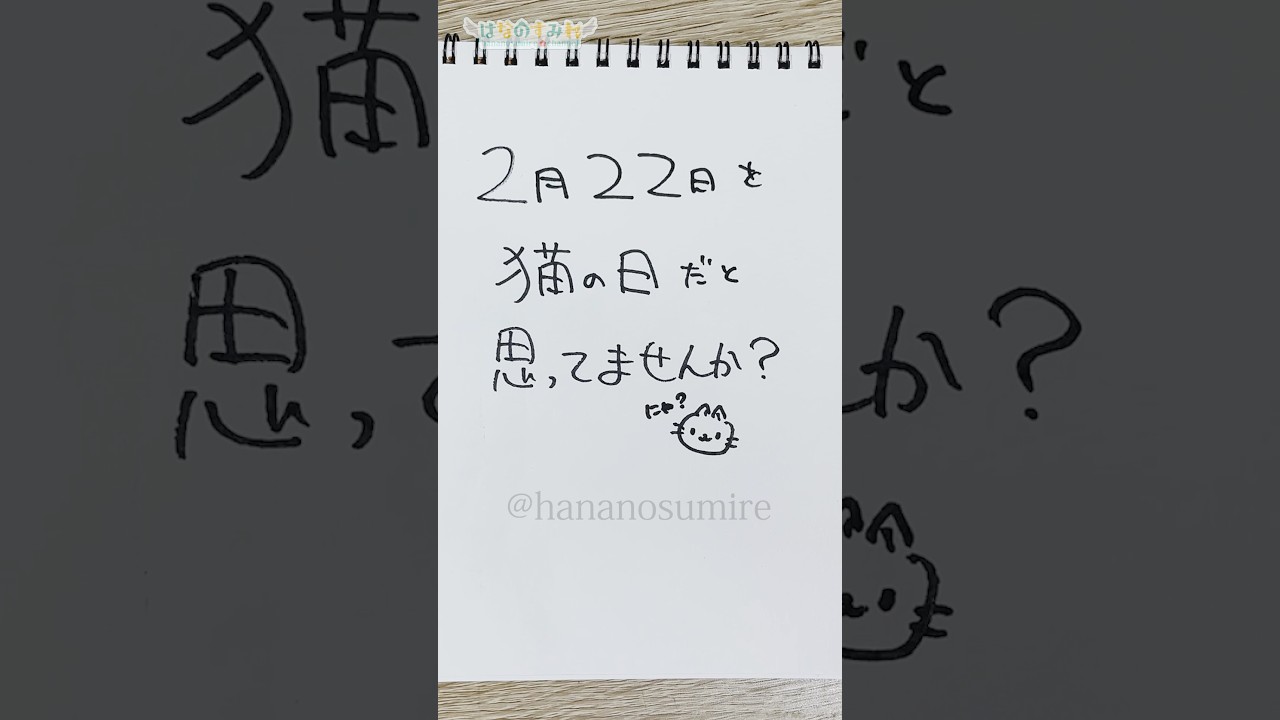 はなのすみれ
2月22日を
猫の日だと
思ってませんか?
にゃ?
@hananosumire